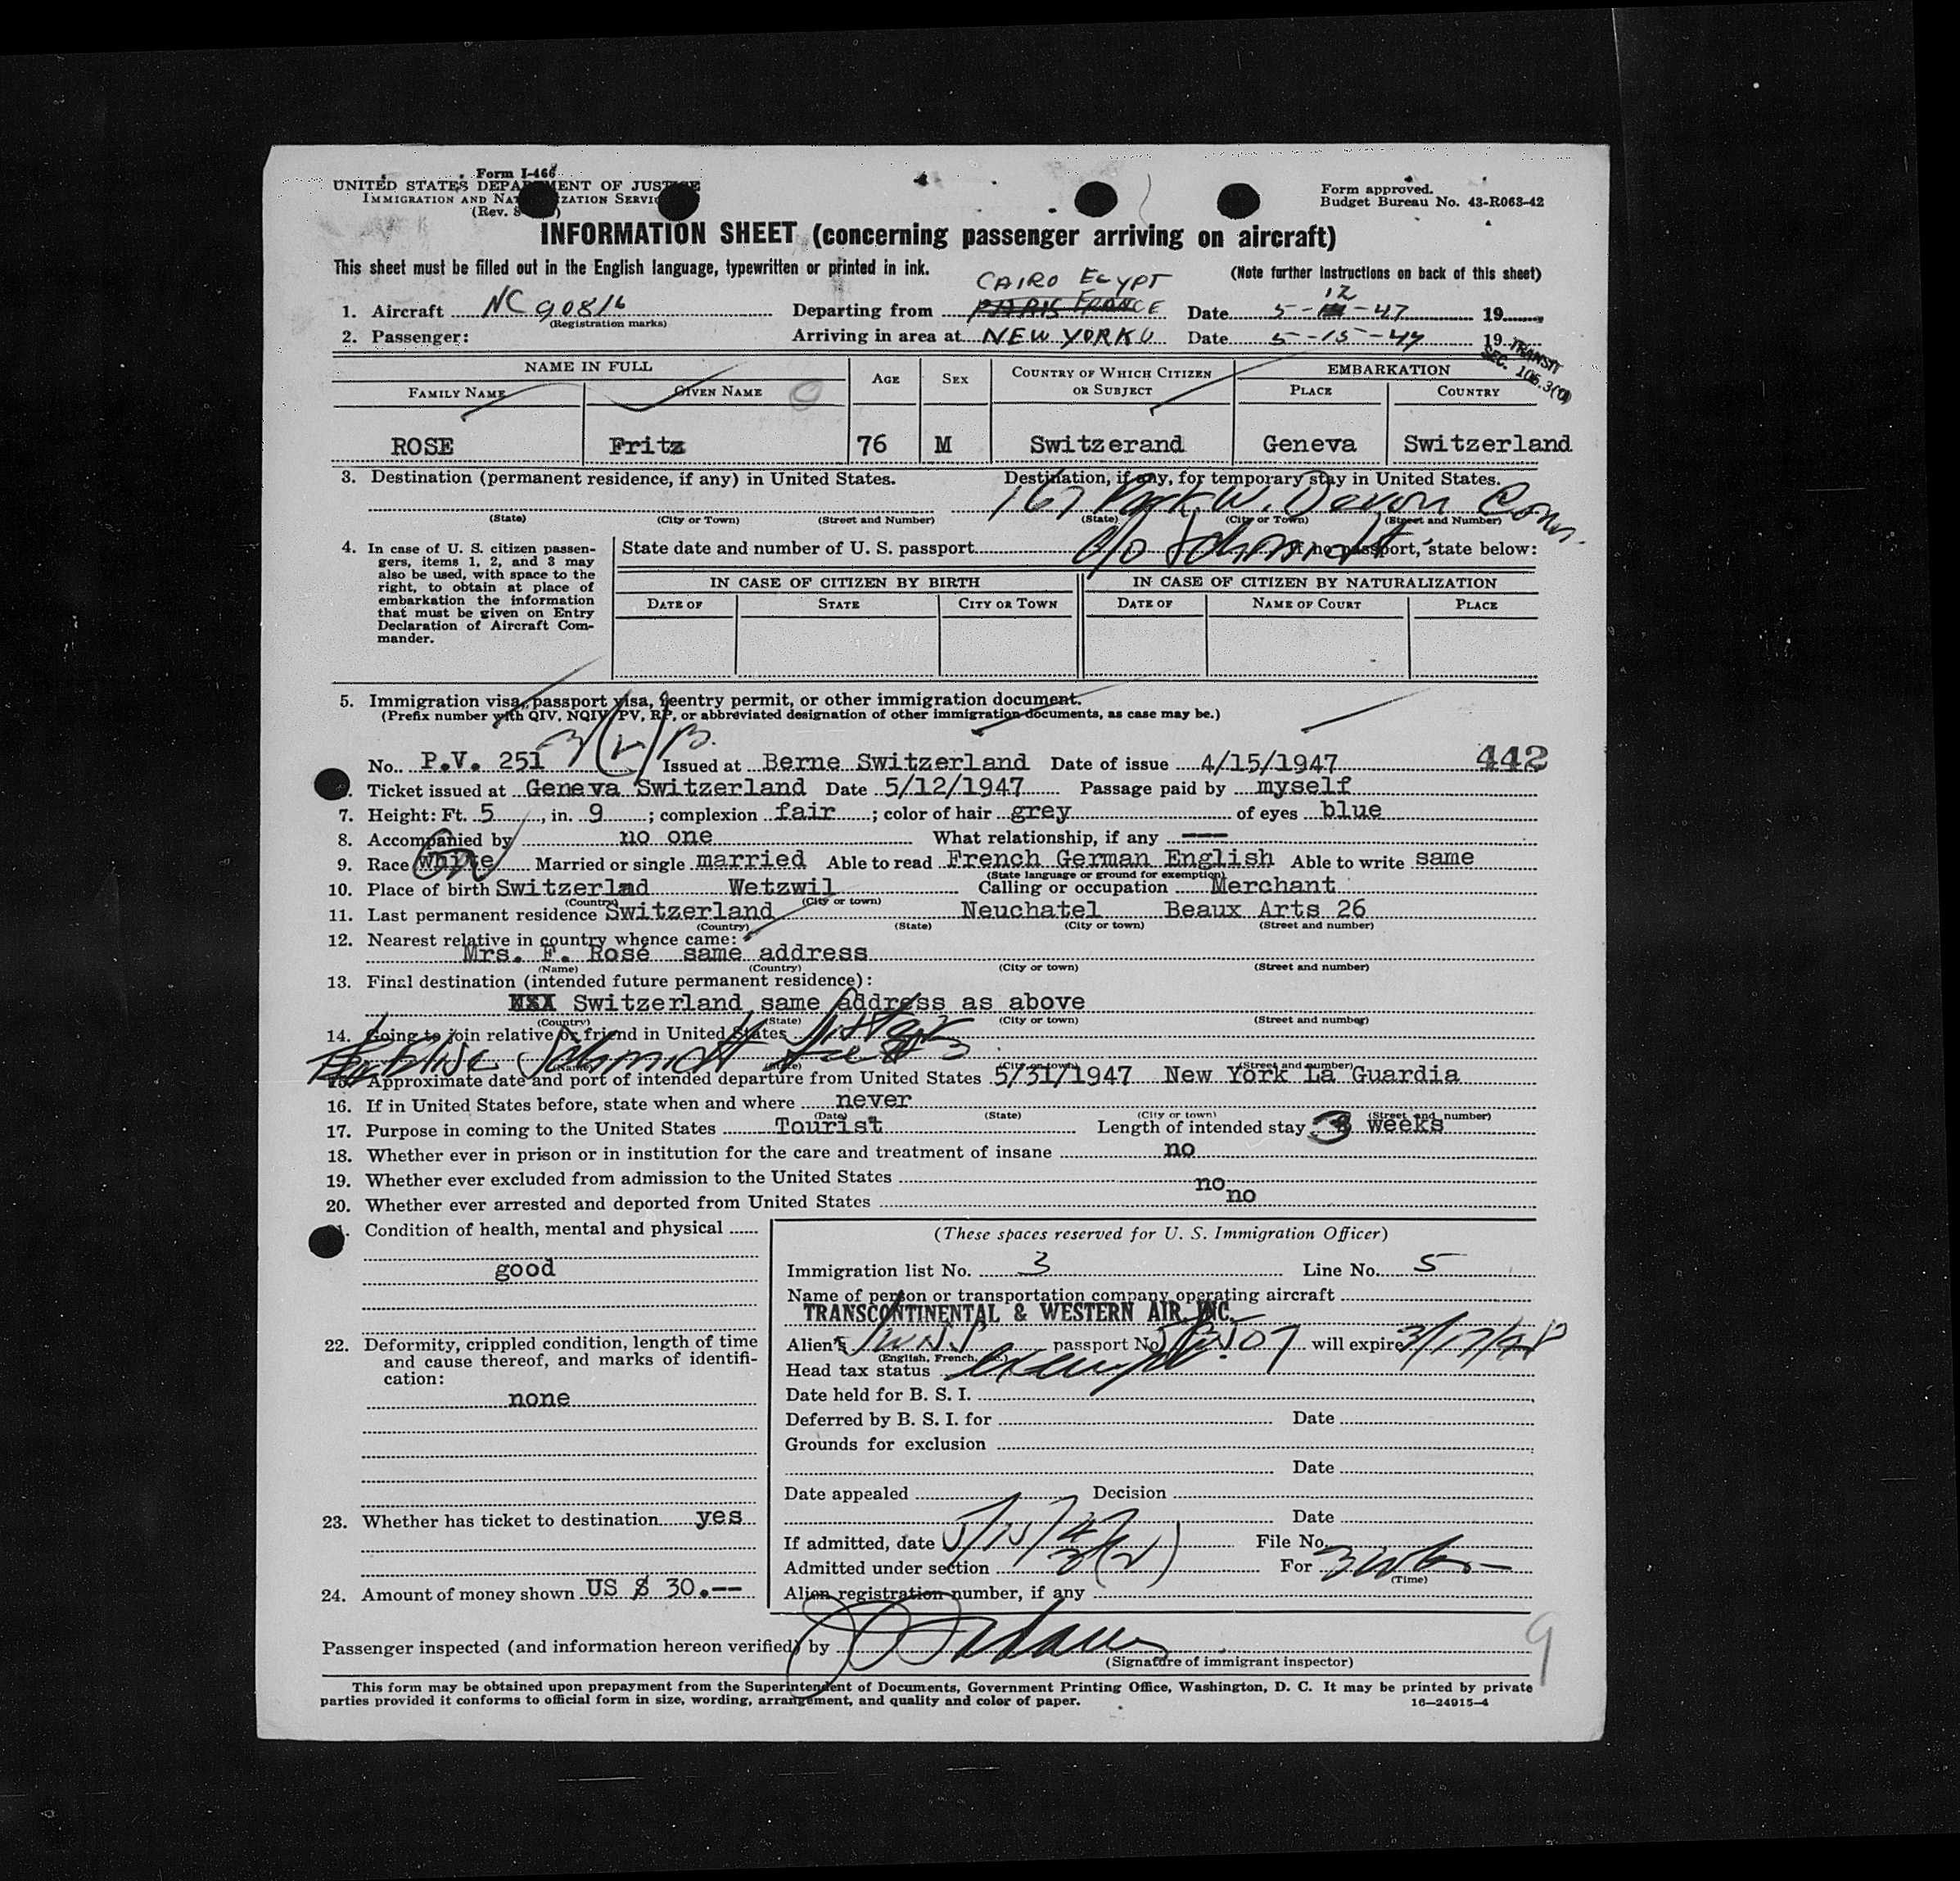 Form I-466
UNITED STATES DEPARTMENT OF JUSTICE
IMMIGRATION AND NATURALIZATION SERVICE
(Rev.
Form approved.
Budget Bureau No. 43-R063-42
INFORMATION SHEET (concerning passenger arriving on aircraft)
This sheet must be filled out in the English language, typewritten or printed in ink. (Note further instructions on back of this sheet)
CAIRO EGYPT
12
1. Aircraft NC 90816 Departing from PARIS FRANCE Date 5- -47 19
(Registration marks)
2. Passenger: Arriving in area at NEW YORK Date 5-15-47 19
TRANSIT
SEC. 106.3
NAME IN FULL AGE SEX COUNTRY OF WHICH CITIZEN OR SUBJECT EMBARKATION
FAMILY NAME GIVEN NAME PLACE COUNTRY
ROSE Fritz 76 M Switzerand Geneva Switzerland
3. Destination (permanent residence, if any) in United States. Destination, if any, for temporary stay in United States.
167 Park W. Devon Conn.
(State) (City or Town) (Street and Number) (State) (City or Town) (Street and Number)
c/o Schmidt
4. In case of U. S. citizen passengers, items 1, 2, and 3 may also be used, with space to the right, to obtain at place of embarkation the information that must be given on Entry Declaration of Aircraft Commander.
State date and number of U. S. passport If no passport, state below:
IN CASE OF CITIZEN BY BIRTH IN CASE OF CITIZEN BY NATURALIZATION
DATE OF STATE CITY OR TOWN DATE OF NAME OF COURT PLACE
5. Immigration visa, passport visa, reentry permit, or other immigration document.
(Prefix number with QIV, NQIV, PV, RP, or abbreviated designation of other immigration documents, as case may be.)
3(2) B.
No. P.V. 251 Issued at Berne Switzerland Date of issue 4/15/1947 442
Ticket issued at Geneva Switzerland Date 5/12/1947 Passage paid by myself
7. Height: Ft. 5, in. 9; complexion fair; color of hair grey of eyes blue
8. Accompanied by no one What relationship, if any ---
9. Race white Married or single married Able to read French German English Able to write same
(State language or ground for exemption)
10. Place of birth Switzerlnd Wetzwil Calling or occupation Merchant
(Country) (City or town)
11. Last permanent residence Switzerland Neuchatel Beaux Arts 26
(Country) (State) (City or town) (Street and number)
12. Nearest relative in country whence came:
Mrs. F. Rose same address
(Name) (Country) (City or town) (Street and number)
13. Final destination (intended future permanent residence):
Switzerland same address as above
(Country) (State) (City or town) (Street and number)
14. Going to join relative or friend in United States Sister
Elise Schmidt see #3
(Name) (State) (City or town) (Street and number)
15. Approximate date and port of intended departure from United States 5/31/1947 New York La Guardia
16. If in United States before, state when and where never
(Date) (State) (City or town) (Street and number)
17. Purpose in coming to the United States Tourist Length of intended stay 3 weeks
18. Whether ever in prison or in institution for the care and treatment of insane no
19. Whether ever excluded from admission to the United States no
20. Whether ever arrested and deported from United States no
Condition of health, mental and physical
good
22. Deformity, crippled condition, length of time and cause thereof, and marks of identification:
none
23. Whether has ticket to destination yes
24. Amount of money shown US $ 30.--
(These spaces reserved for U. S. Immigration Officer)
Immigration list No. 3 Line No. 5
Name of person or transportation company operating aircraft
TRANSCONTINENTAL & WESTERN AIR, INC.
Alien's passport No. will expire 3/17/48
(English, French, etc.)
Head tax status exempt
Date held for B. S. I.
Deferred by B. S. I. for Date
Grounds for exclusion
Date
Date appealed Decision
Date
If admitted, date 5/15/47 File No.
Admitted under section 3(2) For 3 wks
(Time)
Alien registration number, if any
Passenger inspected (and information hereon verified) by
(Signature of immigrant inspector)
9
This form may be obtained upon prepayment from the Superintendent of Documents, Government Printing Office, Washington, D. C. It may be printed by private
parties provided it conforms to official form in size, wording, arrangement, and quality and color of paper. 16—24915-4